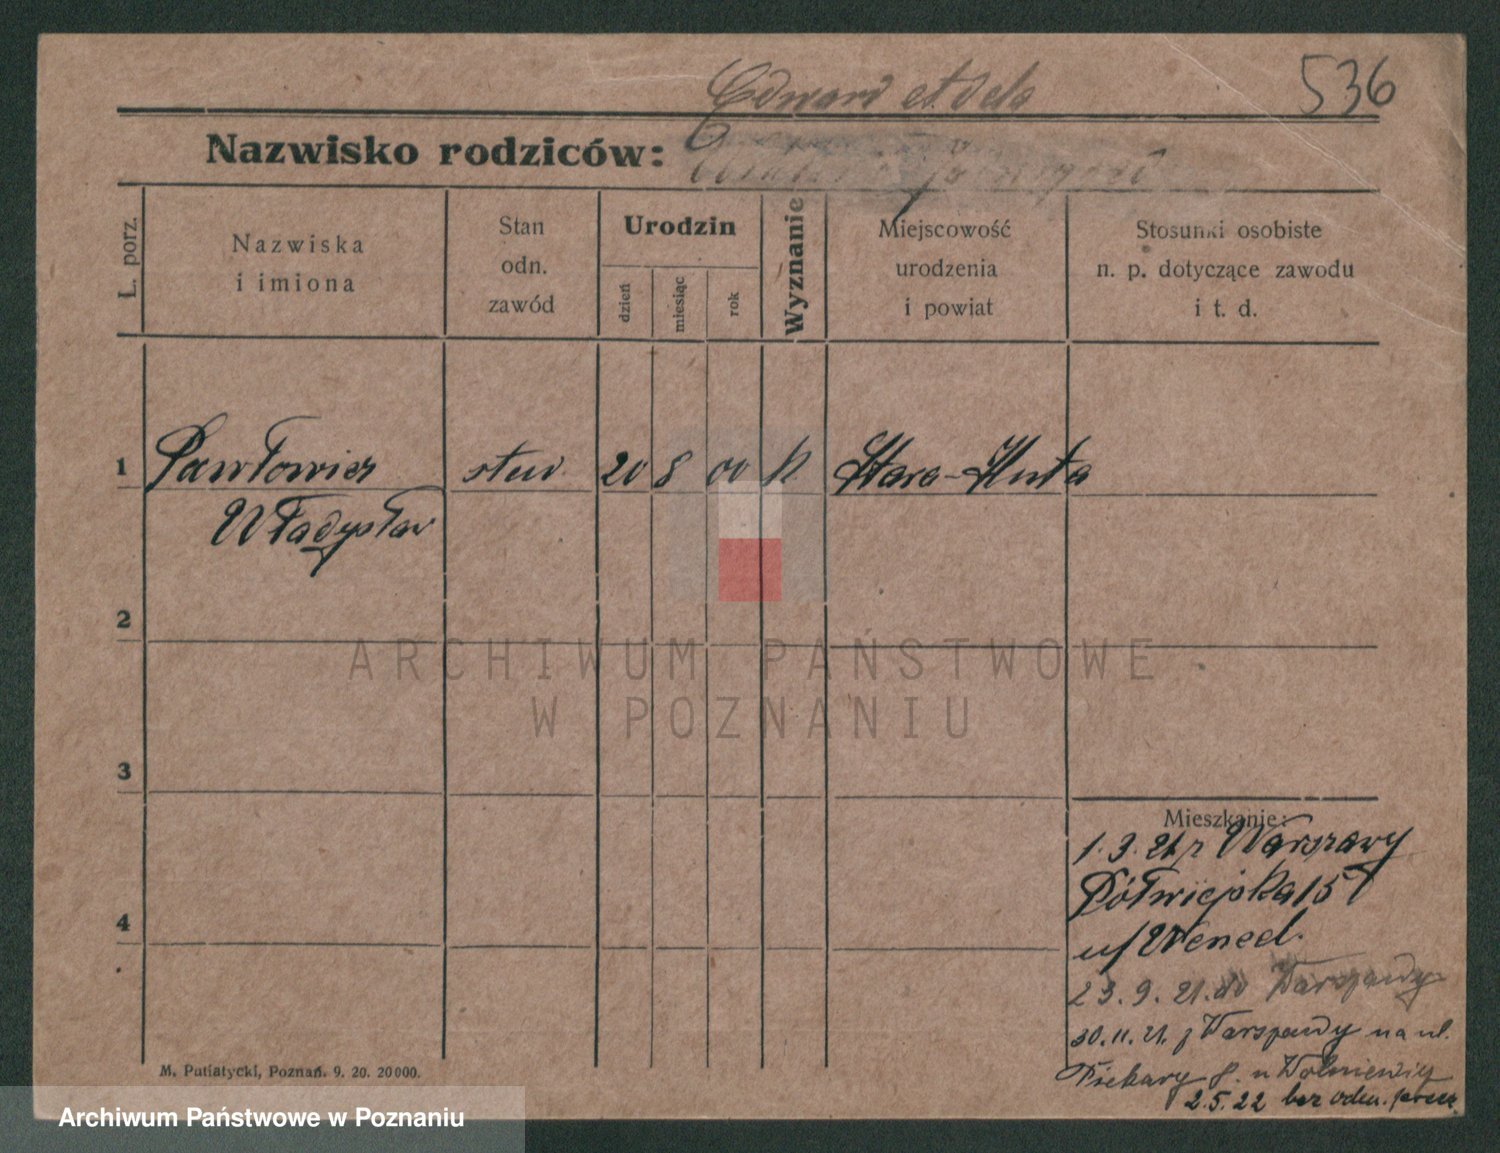 536
Edward et Adela
Nazwisko rodziców:
L. porz.
Nazwiska
i imiona
Stan
odn.
zawód
Urodzin
dzień
miesiąc
rok
Wyznanie
Miejscowość
urodzenia
i powiat
Stosunki osobiste
n. p. dotyczące zawodu
i t. d.
1 Pawłowicz stud. 20 8 00 k Stara-Huta
Władysław
2
3
4
ARCHIWUM PAŃSTWOWE
W POZNANIU
Mieszkanie:
1.3.21 z Warszawy
Półwiejska 15
u/ Wened.
23.9.21. do Warszawy
30.11.21. z Warszawy na ul.
Piekary 8. u
2.5.22 bez odm.
M. Putiatycki, Poznań. 9. 20. 20000.
Archiwum Państwowe w Poznaniu